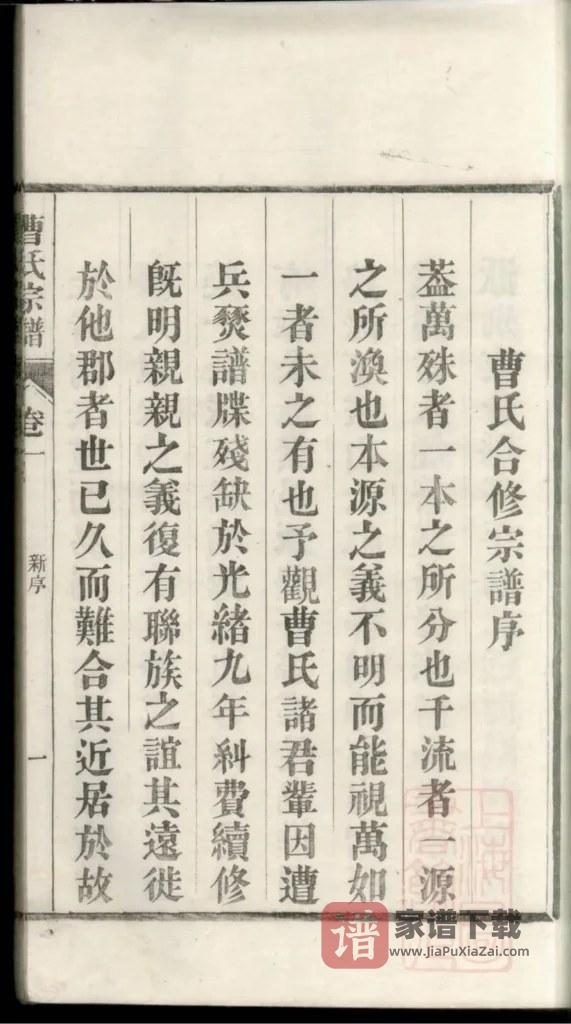 曹氏合修宗譜序
葢萬殊者一本之所分也千流者一源
之所渙也本源之義不明而能視萬如
一者未之有也予觀曹氏諸君輩因遭
兵燹譜牒殘缺於光緒九年糾費續修
旣明親親之義復有聯族之誼其遠徙
於他郡者世已久而難合其近居於故
曹氏宗譜
卷一
新序
一
谱
家谱下载
www.JiaPuXiaZai.com